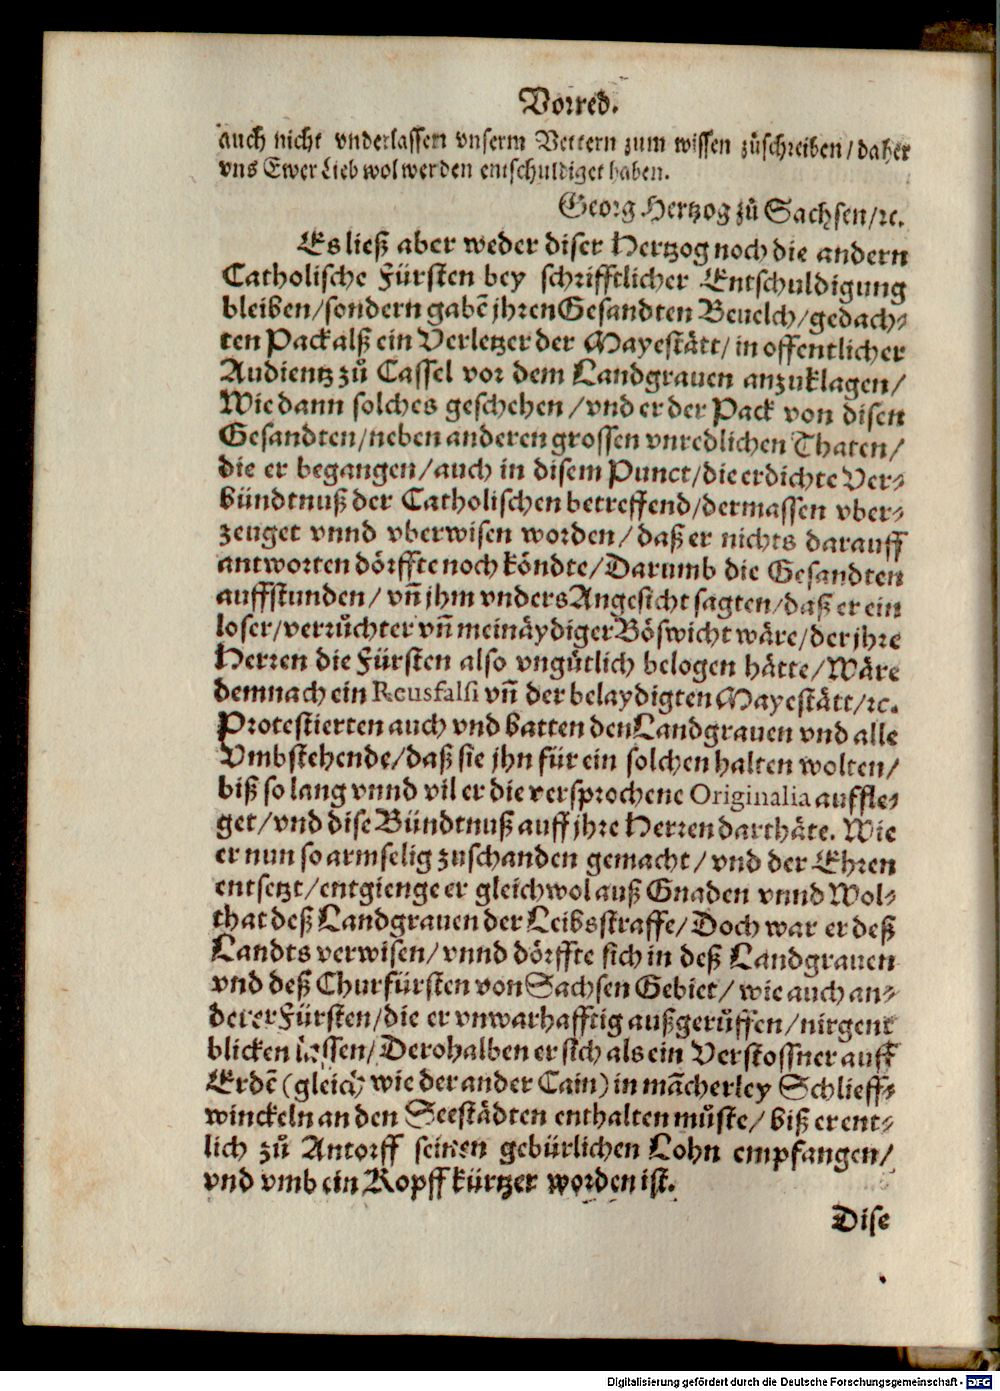 Vorred.
auch nicht vnderlassen vnserm Vettern zum wissen zůschreiben/daher
vns Ewer Lieb wol werden entschuldiget haben.
Georg Hertzog zů Sachsen/ꝛc.
Es ließ aber weder diser Hertzog noch die andern
Catholische Fürsten bey schrifftlicher Entschuldigung
bleiben/sondern gabẽ jhren Gesandten Beuelch/gedach⸗
ten Pack alß ein Verletzer der Mayestätt/in offentlicher
Audientz zů Cassel vor dem Landgrauen anzuklagen/
Wie dann solches geschehen/vnd er der Pack von disen
Gesandten/neben anderen grossen vnredlichen Thaten/
die er begangen/auch in disem Punct/die erdichte Ver⸗
bündtnuß der Catholischen betreffend/dermassen vber⸗
zeuget vnnd vberwisen worden/daß er nichts darauff
antworten dörffte noch köndte/Darumb die Gesandten
auffstunden/vñ jhm vnders Angesicht sagten/daß er ein
loser/verrůchter vñ meinäydiger Böswicht wäre/der jhre
Herren die Fürsten also vngůtlich belogen hätte/Wäre
demnach ein Reus falsi vñ der belaydigten Mayestätt/ꝛc.
Protestierten auch vnd batten den Landgrauen vnd alle
Vmbstehende/daß sie jhn für ein solchen halten wolten/
biß so lang vnnd vil er die versprochene Originalia auffle⸗
get/vnd dise Bündtnuß auff jhre Herren darthäte. Wie
er nun so armselig zuschanden gemacht/vnd der Ehren
entsetzt/entgienge er gleichwol auß Gnaden vnnd Wol⸗
that deß Landgrauen der Leibsstraffe/Doch war er deß
Landts verwisen/vnnd dörffte sich in deß Landgrauen
vnd deß Churfürsten von Sachsen Gebiet/wie auch an⸗
derer Fürsten/die er vnwarhafftig außgerůffen/nirgent
blicken lassen/Derohalben er sich als ein Verstossner auff
Erdẽ (gleich wie der ander Cain) in mãcherley Schlieff⸗
winckeln an den Seestädten enthalten můste/biß er ent⸗
lich zů Antorff seinen gebürlichen Lohn empfangen/
vnd vmb ein Kopff kürtzer worden ist.
Dise
Digitalisierung gefördert durch die Deutsche Forschungsgemeinschaft - DFG